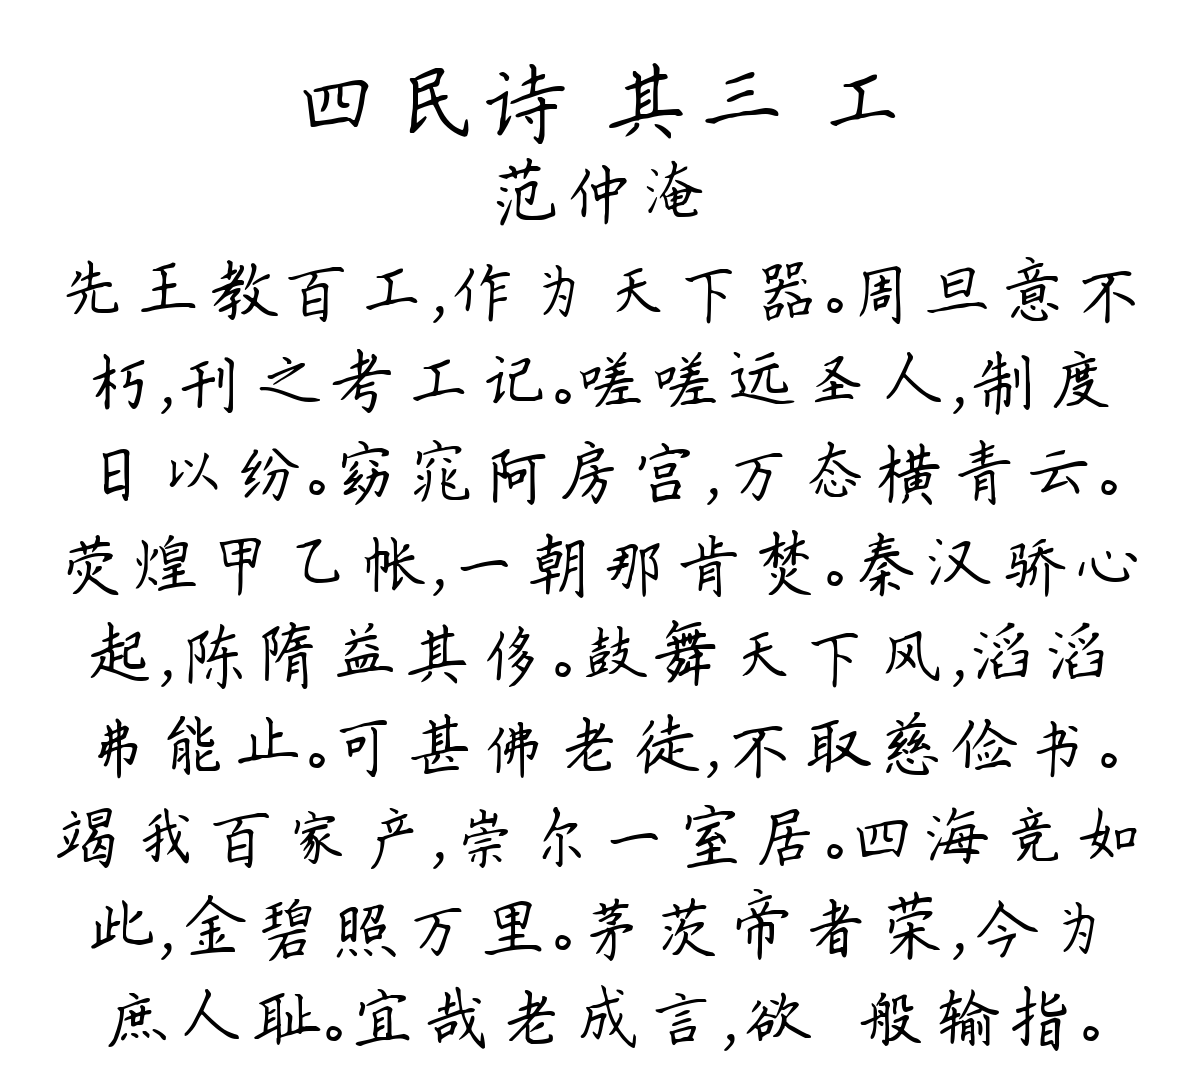 四民诗 其三 工
范仲淹
先王教百工,作为天下器。周旦意不
朽,刊之考工记。嗟嗟远圣人,制度
日以纷。窈窕阿房宫,万态横青云。
荧煌甲乙帐,一朝那肯焚。秦汉骄心
起,陈隋益其侈。鼓舞天下风,滔滔
弗能止。可甚佛老徒,不取慈俭书。
竭我百家产,崇尔一室居。四海竞如
此,金碧照万里。茅茨帝者荣,今为
庶人耻。宜哉老成言,欲 般输指。